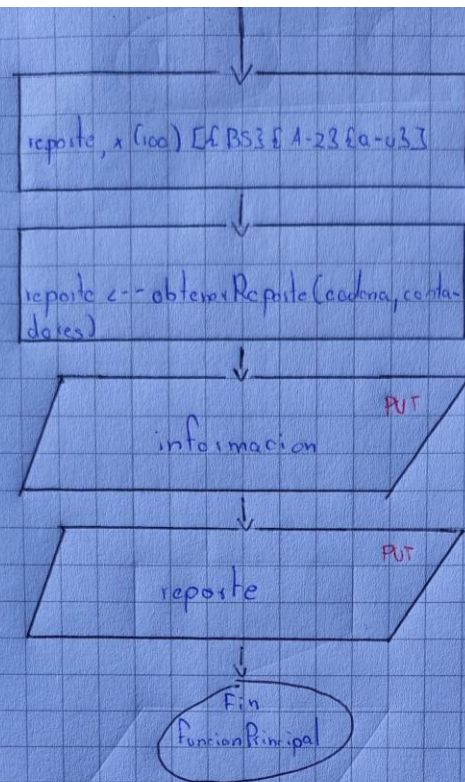 reporte, x (100) [{BS}{A-Z}{a-z}]
reporte <-- obtenerReporte(cadena, conta-
dores)
PUT
informacion
PUT
reporte
Fin
FuncionPrincipal